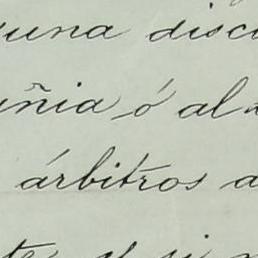 una disc
ñia ó al
árbitros a
te y si